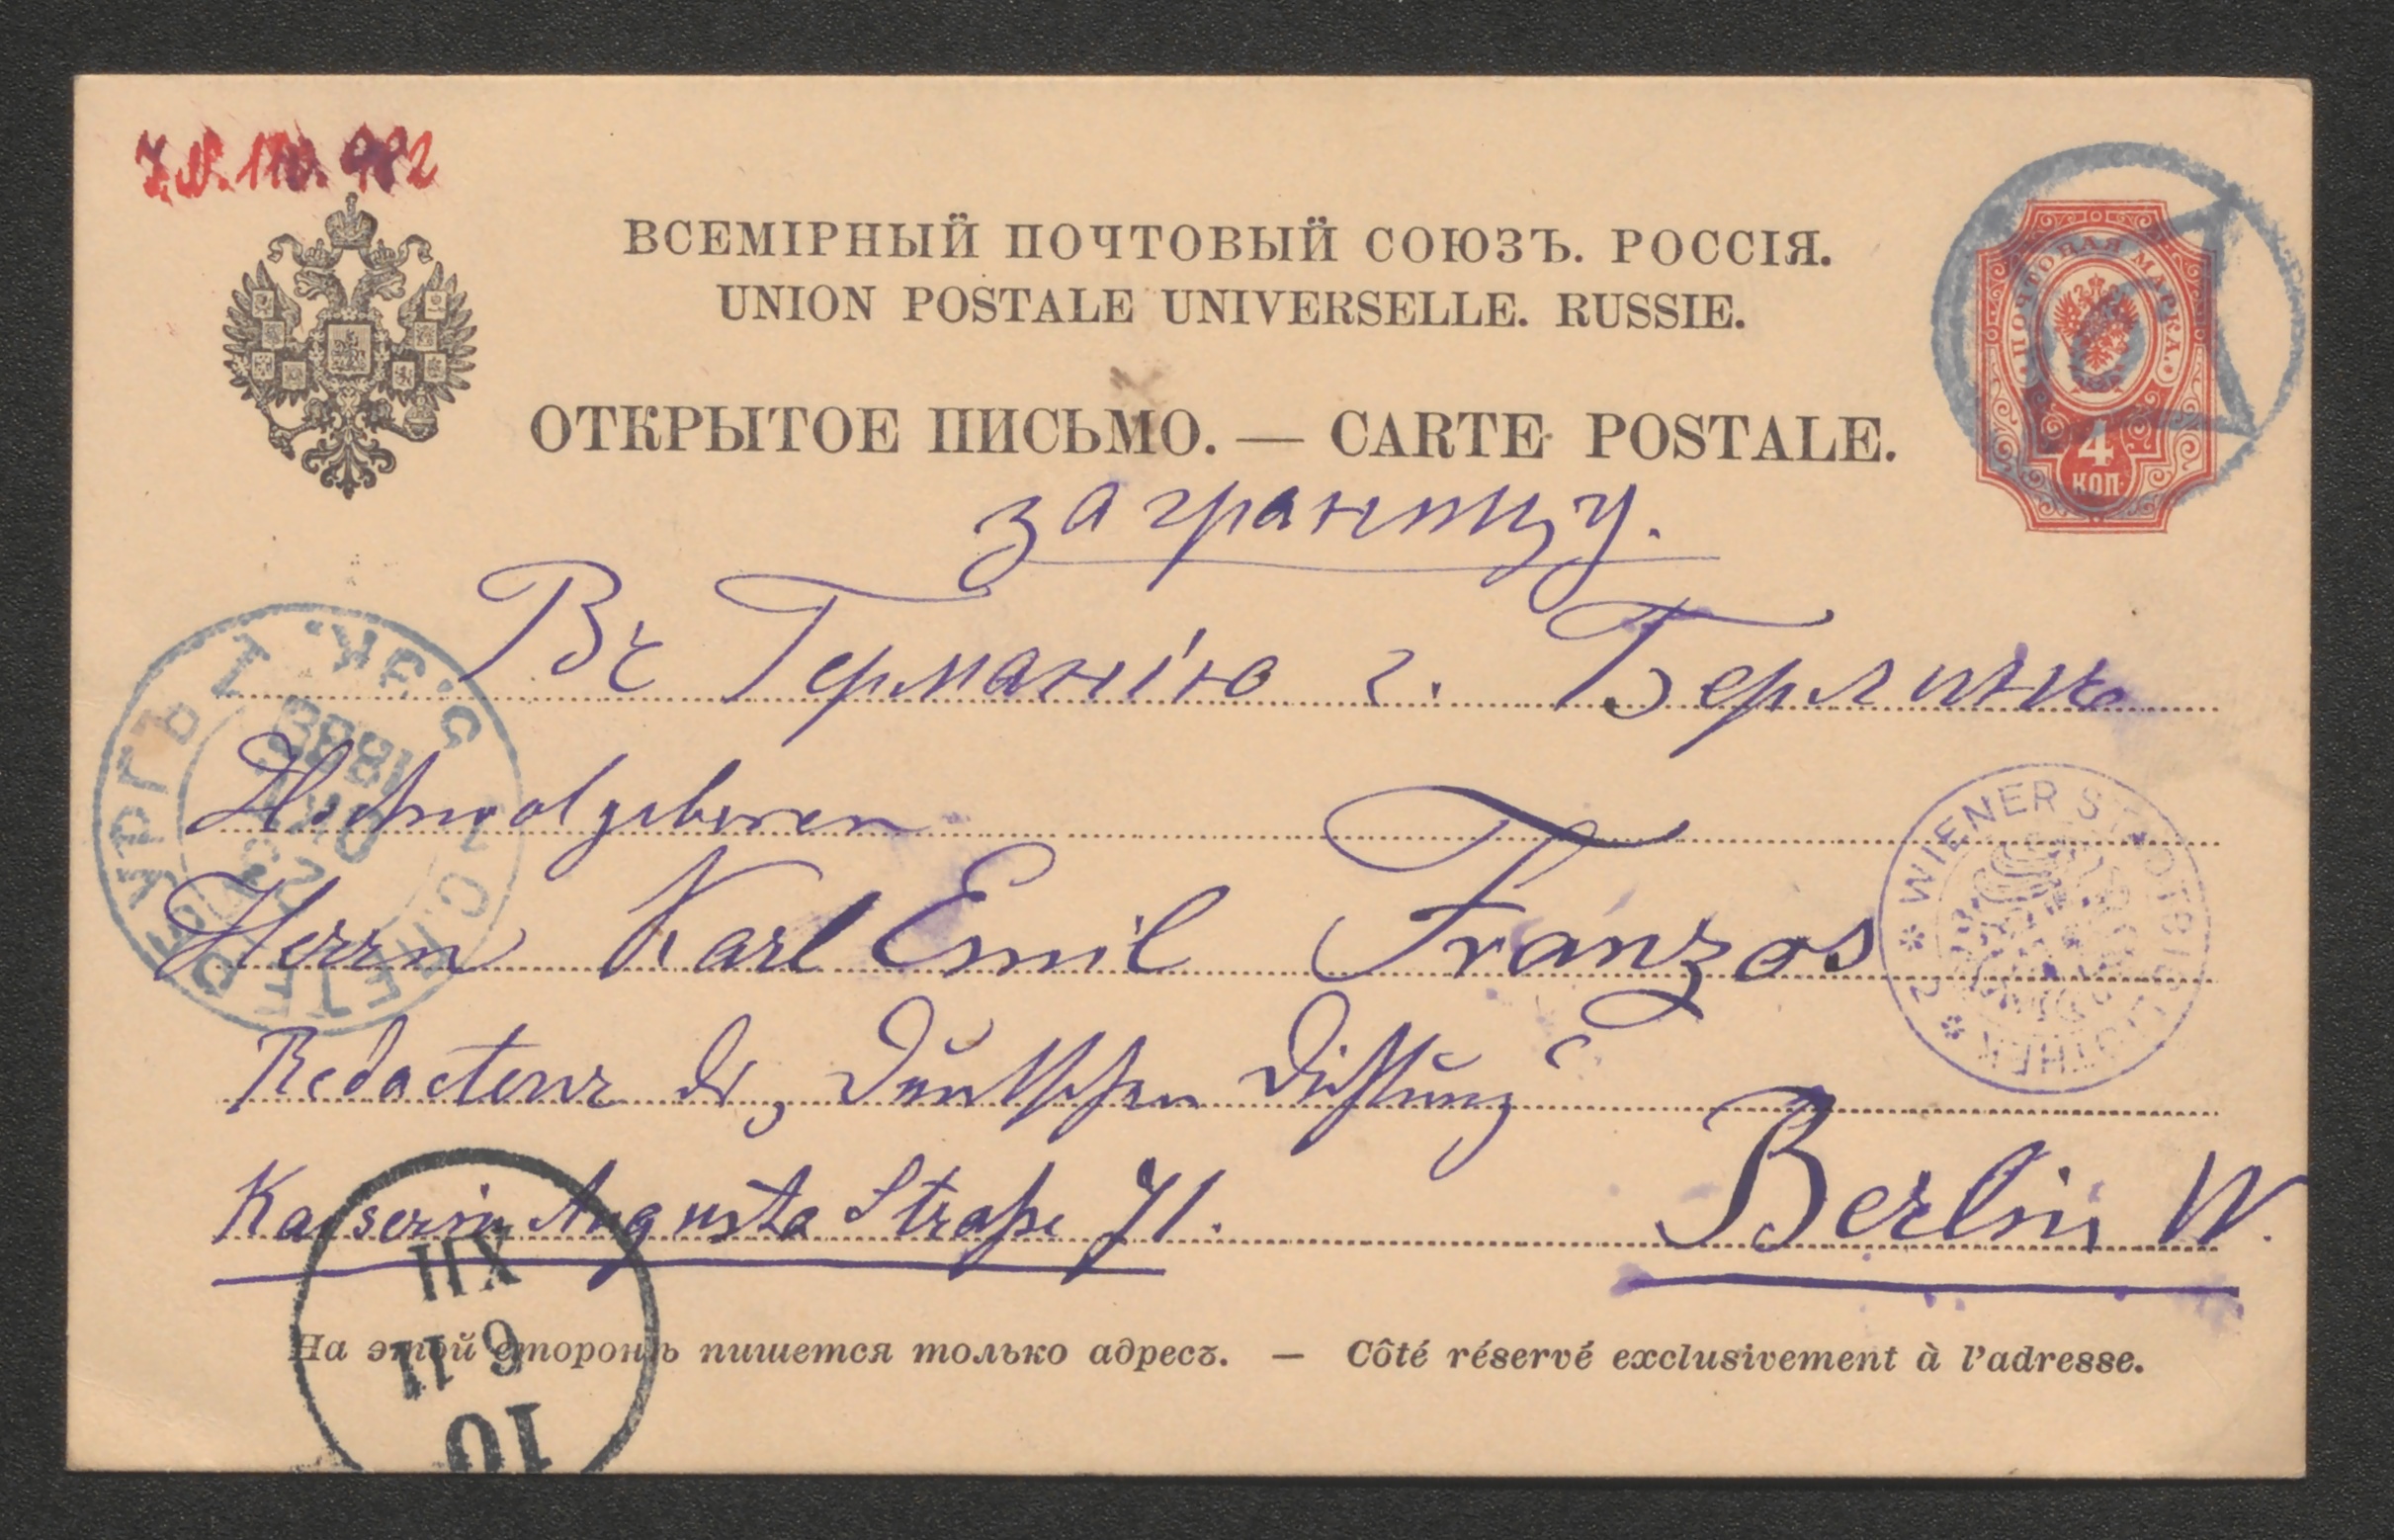 J.N. 170.982
ВСЕМІРНЫЙ ПОЧТОВЫЙ СОЮЗЪ. РОССІЯ.
UNION POSTALE UNIVERSELLE. RUSSIE.
ОТКРЫТОЕ ПИСЬМО. — CARTE POSTALE.
ПОЧТОВАЯ МАРКА.
4
КОП.
заграницу.
Въ Германію г. Берлинъ
Hochwolgeboren
Herrn Karl Emil Franzos
Redacteur d. „Deutschen Dichtung“
Kaiserin Augusta Straße 71. Berlin W.
На этой сторонѣ пишется только адресъ. — Côté réservé exclusivement à l'adresse.
С.ПЕТЕРБУРГЪ I
23
ОКТ
1888
WIENER STADTBIBLIOTHEK
XII
6 11
10